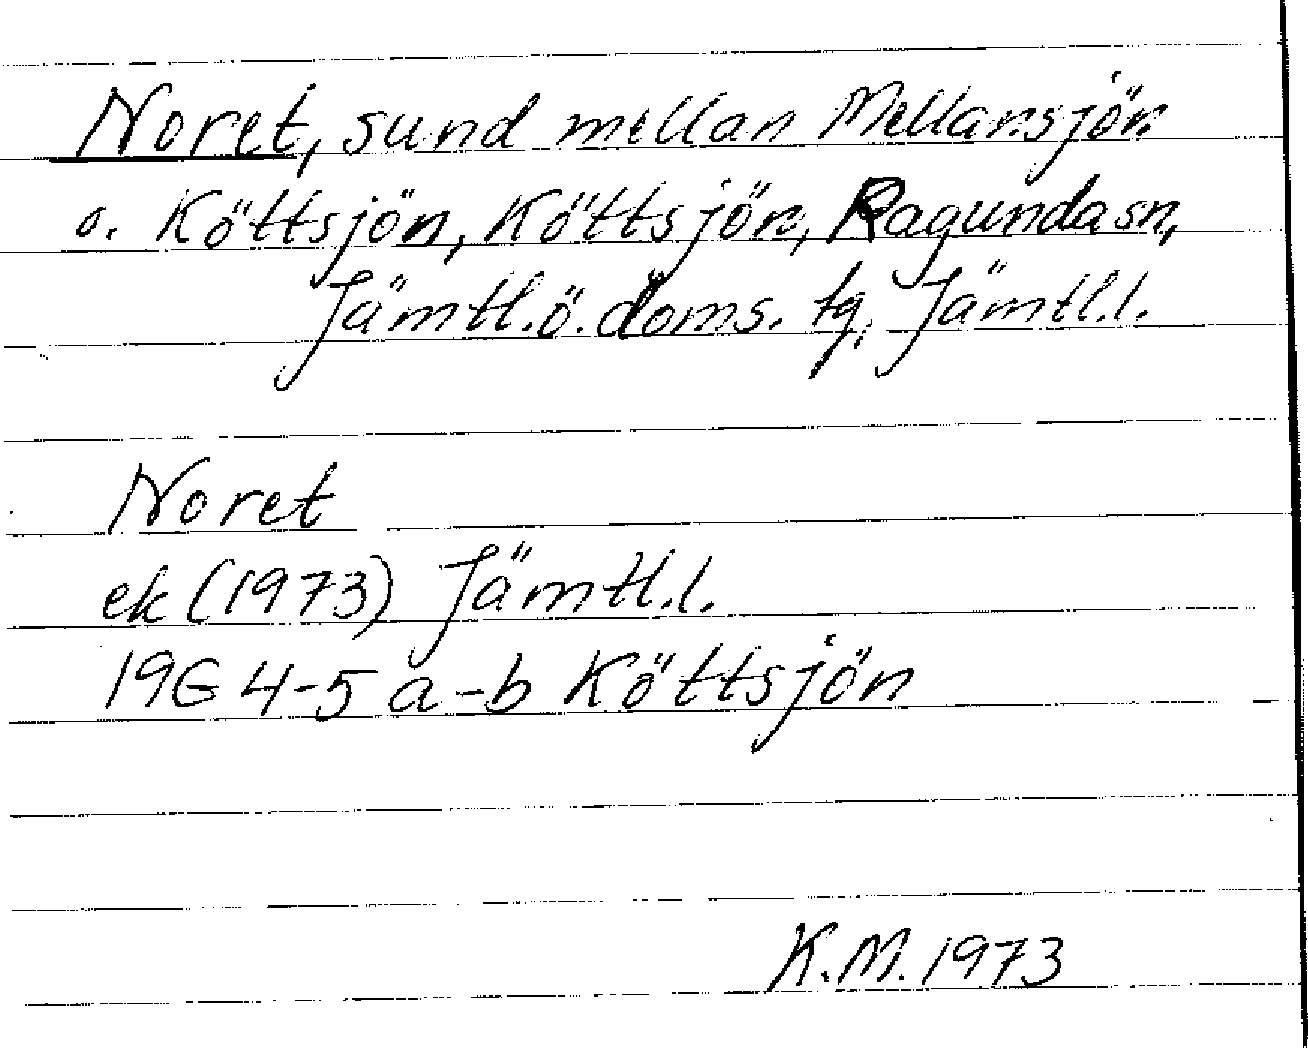 Noret, sund mellan Mellansjön
o. Köttsjön, Köttsjön, Ragunda sn,
Jämtl.ö.doms. tg, Jämtl.l.
Noret
ek (1973) Jämtl.l.
19G 4-5 a-b Köttsjön
K.M. 1973